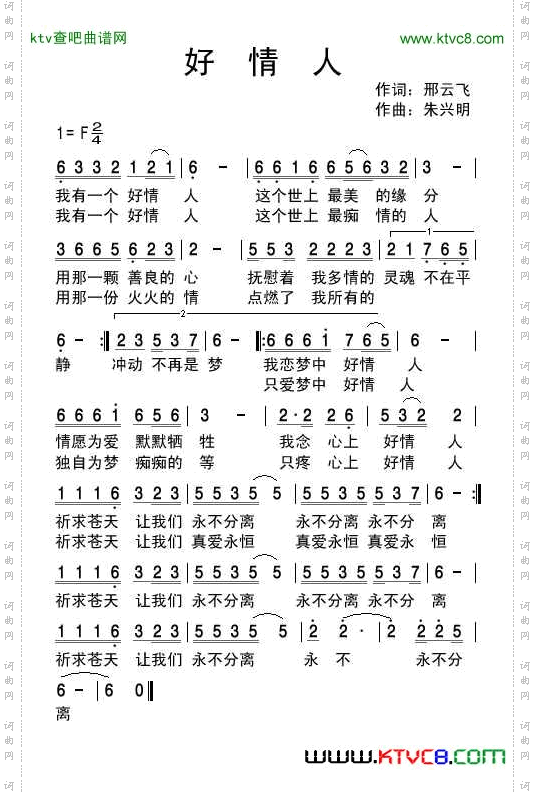 ktv查吧曲谱网
www.ktvc8.com
好 情 人
作词：邢云飞
作曲：朱兴明
1=F 2/4
6 3 3 2 1 2 1 | 6 - | 6 6 1 6 6 5 6 3 2 | 3 - |
我有一个 好情 人 这个世上 最美 的缘 分
我有一个 好情 人 这个世上 最痴 情的 人
3 6 6 5 6 2 3 | 2 - | 5 5 3 2 2 2 3 | 2 1 7 6 5 |
用那一颗 善良的 心 抚慰着 我多情的 灵魂 不在平
用那一份 火火的 情 点燃了 我所有的
6 - :| 2 3 5 3 7 | 6 - :||: 6 6 6 1 7 6 5 | 6 - |
静 冲动 不再是 梦 我恋梦中 好情 人
只爱梦中 好情 人
6 6 6 1 6 5 5 | 3 - | 2· 2 2 6 | 5 3 2 2 |
情愿为爱 默默牺 牲 我念 心上 好情 人
独自为梦 痴痴的 等 只疼 心上 好情 人
1 1 1 6 3 2 3 | 5 5 3 5 5 | 5 5 3 5 5 3 7 | 6 - :|
祈求苍天 让我们 永不分离 永不分离 永不分 离
祈求苍天 让我们 真爱永恒 真爱永恒 真爱永 恒
1 1 1 6 3 2 3 | 5 5 3 5 5 | 5 5 3 5 5 3 7 | 6 - |
祈求苍天 让我们 永不分离 永不分离 永不分 离
1 1 1 6 3 2 3 | 5 5 3 5 5 | 2 2· | 2 - | 2 2 5 |
祈求苍天 让我们 永不分离 永 不 永不分
6 - | 6 0 ||
离
www.KTVC8.com
词曲网